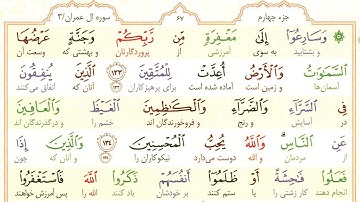 جزء چهارم ۶۷ سوره آل عمران/۳
وَسَارِعُوٓا۟ إِلَىٰ مَغْفِرَةٍ مِّن رَّبِّكُمْ وَجَنَّةٍ عَرْضُهَا
و بشتابید به سوی آمرزشی از پروردگارتان و بهشتی که وسعت آن
السَّمَٰوَٰتُ وَالْأَرْضُ أُعِدَّتْ لِلْمُتَّقِينَ ﴿۱۳۳﴾ الَّذِينَ يُنفِقُونَ
آسمان‌ها و زمین است آماده شده است برای پرهیزگاران آنان که انفاق می‌کنند
فِى السَّرَّآءِ وَالضَّرَّآءِ وَالْكَٰظِمِينَ الْغَيْظَ وَالْعَافِينَ
در آسایش و رنج و فروخورندگان خشم را و درگذرندگان
عَنِ النَّاسِ وَاللَّهُ يُحِبُّ الْمُحْسِنِينَ ﴿۱۳۴﴾ وَالَّذِينَ إِذَا
از مردمان و الله دوست می‌دارد نیکوکاران را و آنان که چون
فَعَلُوا۟ فَٰحِشَةً أَوْ ظَلَمُوٓا۟ أَنفُسَهُمْ ذَكَرُوا۟ اللَّهَ فَاسْتَغْفَرُوا۟
انجام دهند کار زشتی را یا ستم کنند بر خودشان یاد کنند الله را پس آمرزش خواهند